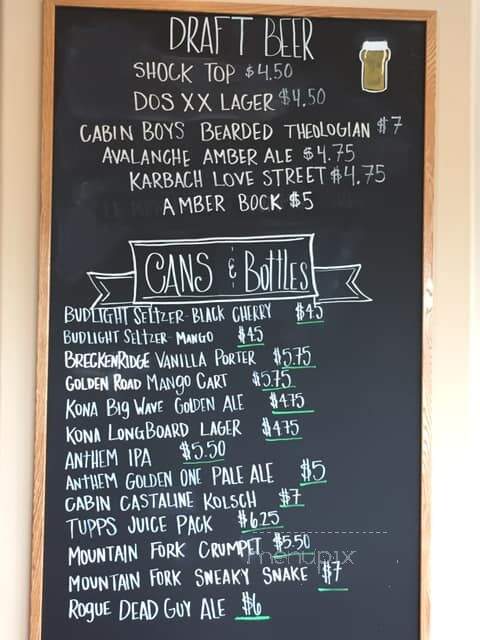 DRAFT BEER
SHOCK TOP $4.50
DOS XX LAGER $4.50
CABIN BOYS BEARDED THEOLOGIAN $7
AVALANCHE AMBER ALE $4.75
KARBACH LOVE STREET $4.75
AMBER BOCK $5
CANS & BOTTLES
BUDLIGHT SELTZER-BLACK CHERRY $4.5
BUDLIGHT SELTZER-MANGO $4.5
BRECKENRIDGE VANILLA PORTER $5.75
GOLDEN ROAD MANGO CART $5.75
KONA BIG WAVE GOLDEN ALE $4.75
KONA LONGBOARD LAGER $4.75
ANTHEM IPA $5.50
ANTHEM GOLDEN ONE PALE ALE $5
CABIN CASTALINE KOLSCH $7
TUPPS JUICE PACK $6.25
MOUNTAIN FORK CRUMPET $5.50
menupix
MOUNTAIN FORK SNEAKY SNAKE $7
ROGUE DEAD GUY ALE $6